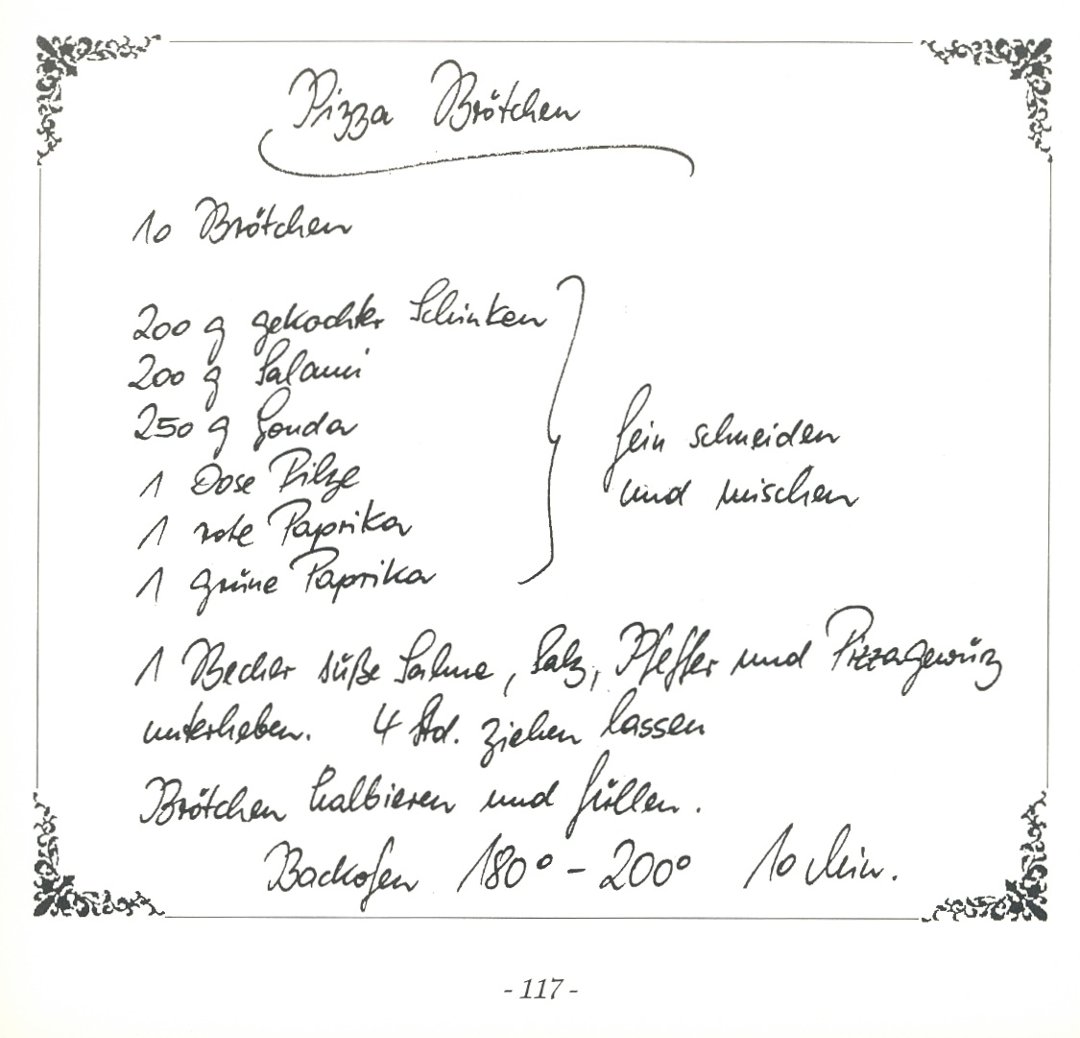 Pizza Brötchen
10 Brötchen
200 g gekochter Schinken
200 g Salami
250 g Gouda
1 Dose Pilze
1 rote Paprika
1 grüne Paprika
fein schneiden
und mischen
1 Becher süße Sahne, Salz, Pfeffer und Pizzagewürz
unterheben. 4 Std. ziehen lassen
Brötchen halbieren und füllen.
Backofen 180° - 200° 10 Min.
- 117 -